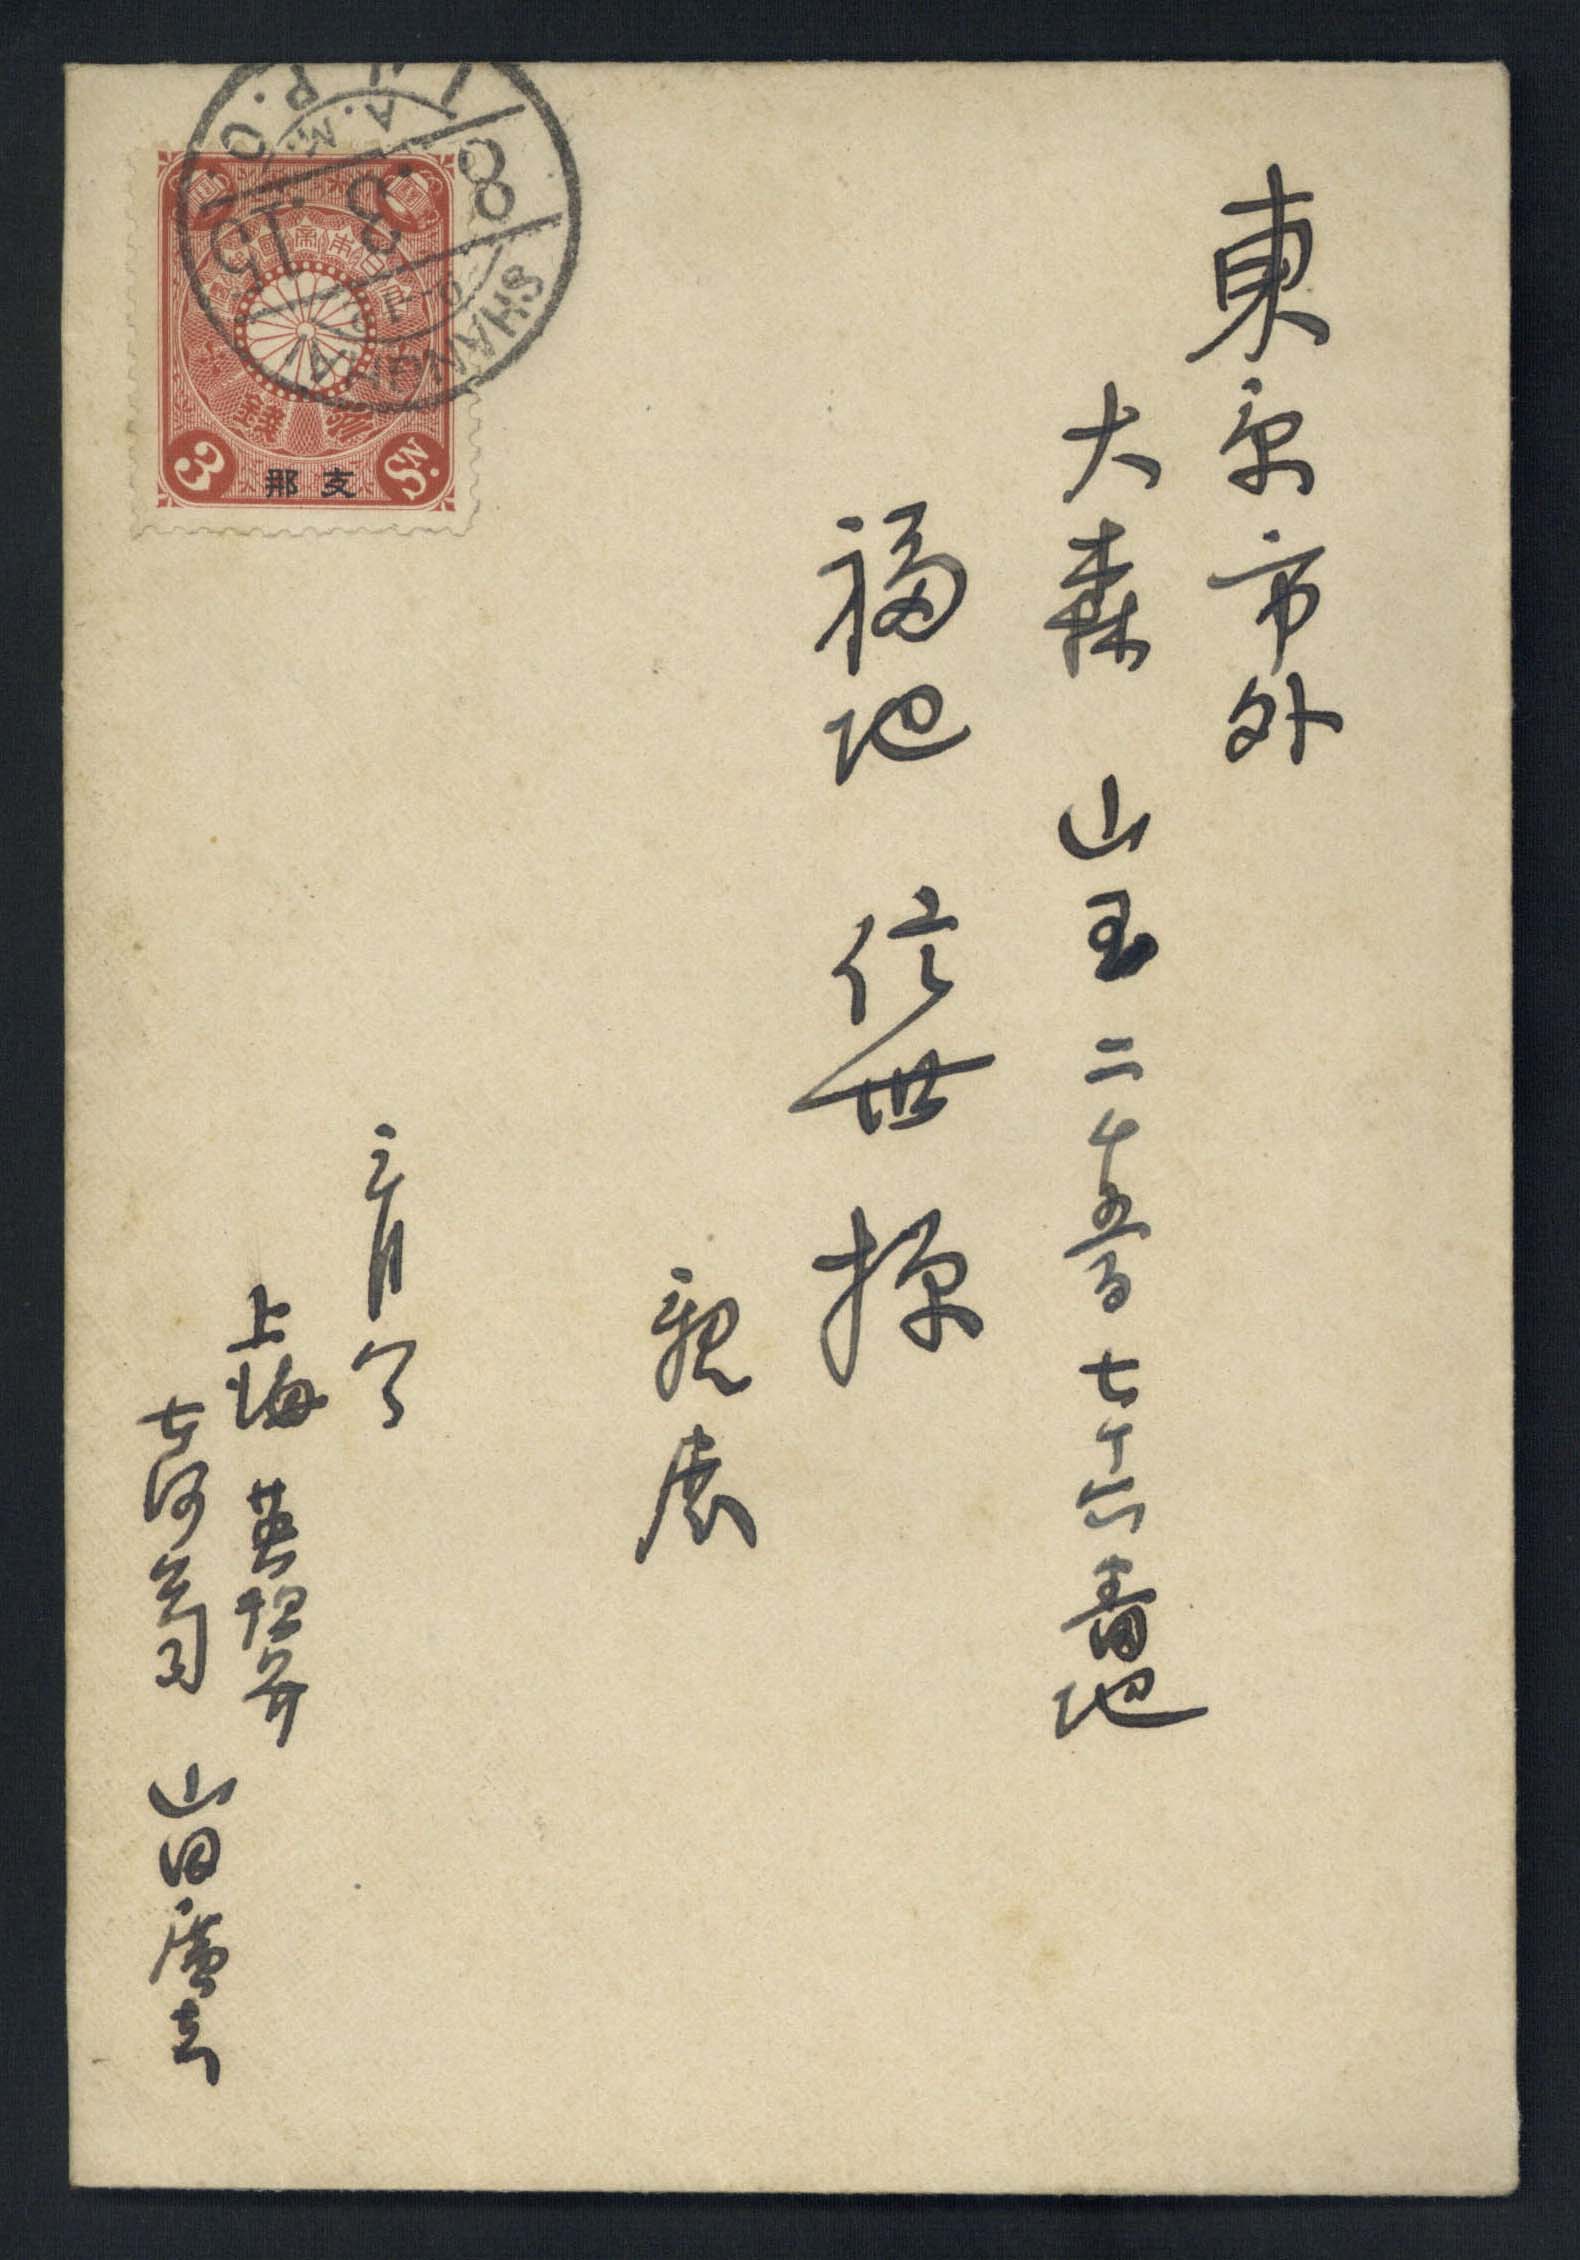 東京市外
大森 山王 二千五百七十六番地
福地 信世 様
親展
三月八日
上海
山田
SHANGHAI
I.J.P.O.
8.3.15
A.M.
大日本帝國郵便
参銭
3
Sn.
支那